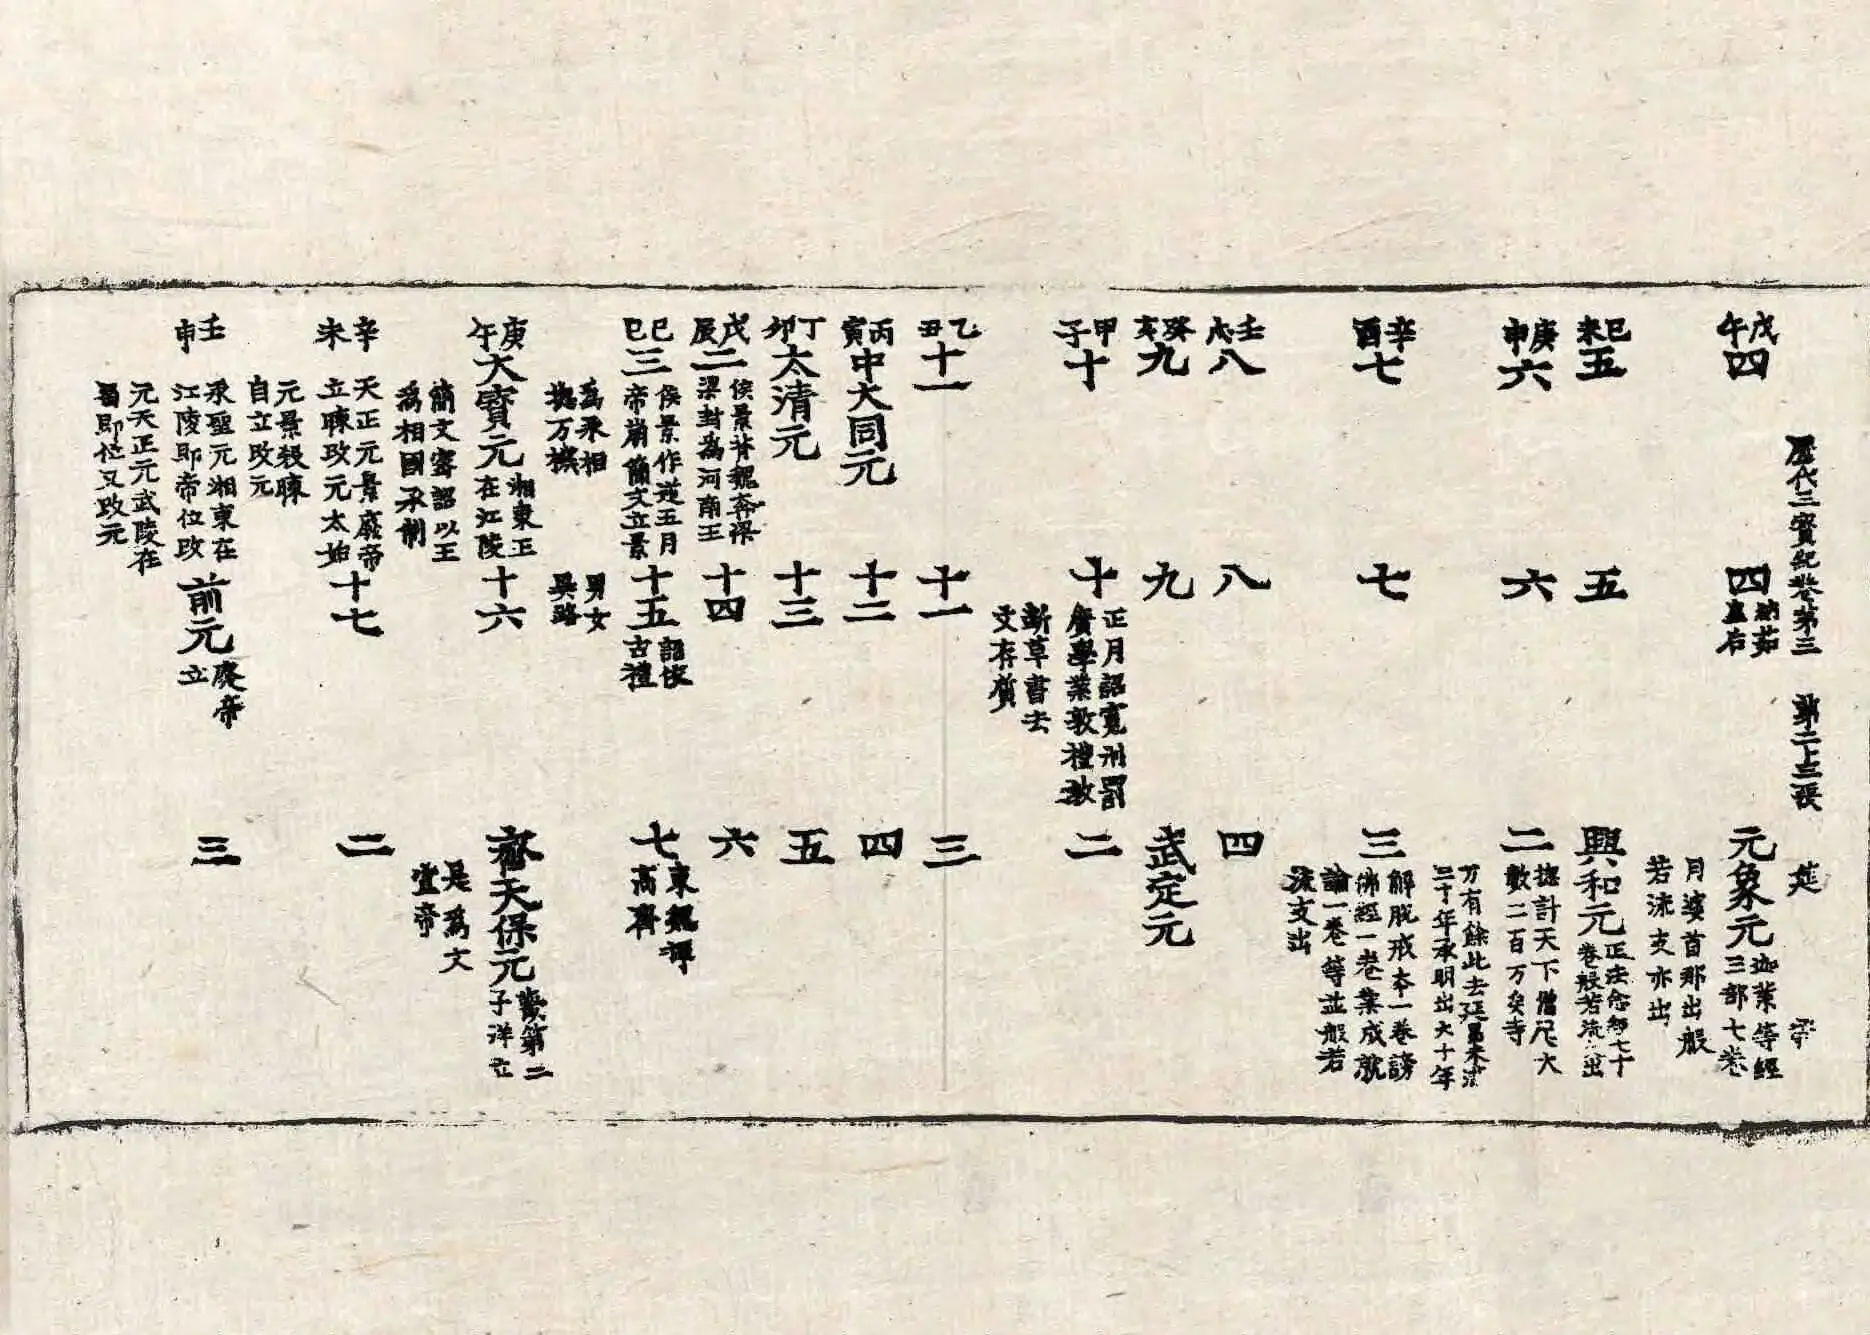 歷代三寶紀卷第三　第二十三張　莚　帝
戊午
四
四
納茹
蠕后
元象元
迦葉等經
三部七卷
月婆首那出般
若流支亦出
己未
五
五
興和元
正法念經七十
卷般若流支出
庚申
六
六
二
揔計天下僧尼大
數二百万矣寺
万有餘此去延昌未滿
三十年承明出六十年
辛酉
七
七
三
解脫戒本一卷謗
佛經一卷業成就
論一卷等並般若
流支出
壬戌
八
八
四
癸亥
九
九
武定元
甲子
十
十
正月詔寬刑罰
廣學業敦禮教
斷草書去
文存質
二
乙丑
十一
十一
三
丙寅
中大同元
十二
四
丁卯
太清元
十三
五
戊辰
二
侯景背魏奔梁
梁封爲河南王
十四
六
己巳
三
侯景作逆五月
帝崩簡文立景
爲丞相
揔万機
十五
詔依
古禮
男女
異路
七
東魏禪
高齊
庚午
大寶元
湘東王
在江陵
簡文密詔以王
爲相國承制
十六
齊天保元
歡第二
子洋立
是爲文
宣帝
辛未
天正元景廢帝
立暕改元太始
元景殺暕
自立改元
十七
二
壬申
承聖元湘東在
江陵即帝位改
元天正元武陵在
蜀即位又改元
前元
廢帝
立
三